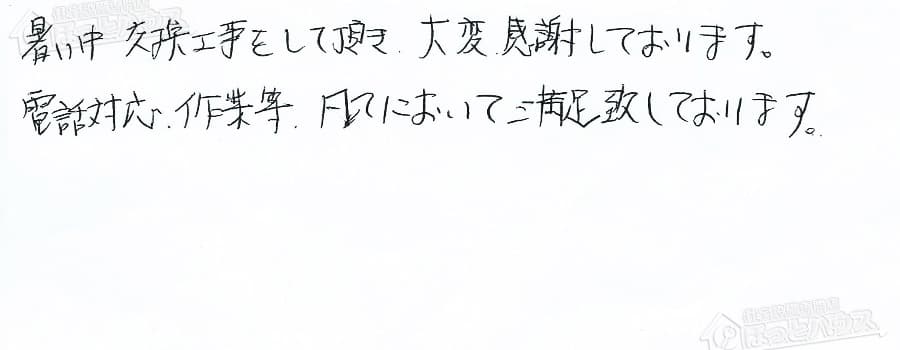 暑い中 交換工事をして頂き、大変感謝しております。
電話対応、作業等、凡てにおいてご満足致しております。
住宅設備専門店
ほっとハウス